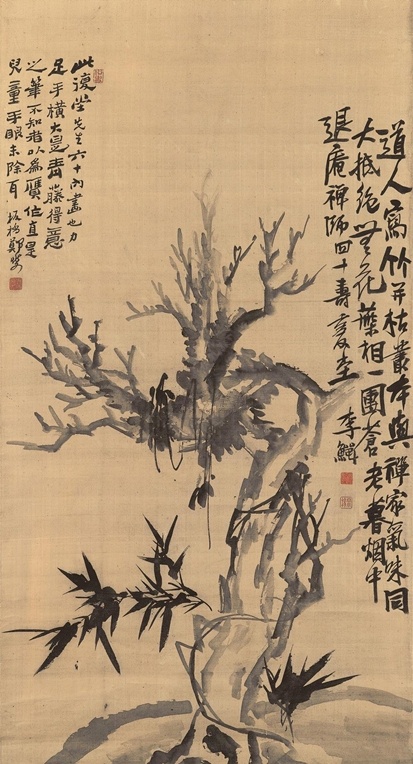 道人寫竹并枯叢却與禪家氣味同
大抵絕無花葉相一團蒼老暮烟中
退庵禪師四十壽復堂李鱓
此復堂先生六十內畫也力
足手橫大是青藤得意
之筆不知者以為贗作直是
兒童手眼未除耳板橋鄭燮